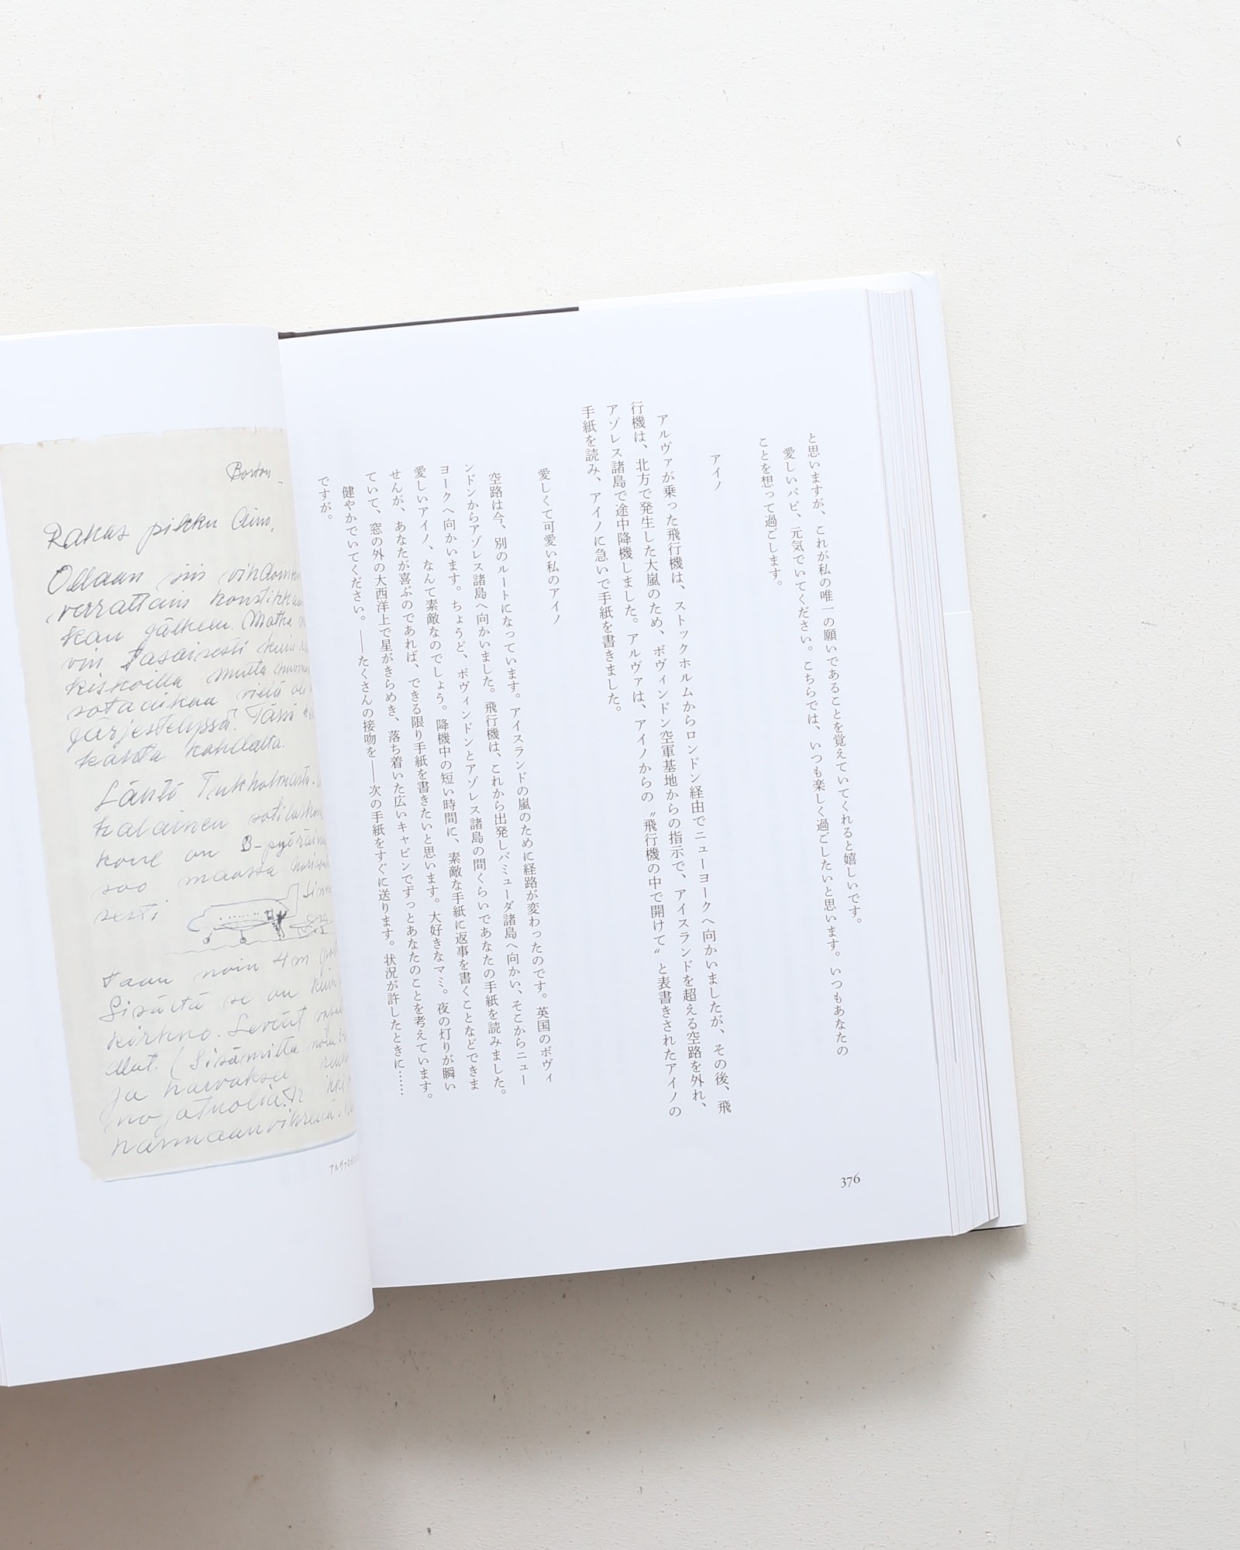 と思いますが、これが私の唯一の願いであることを覚えていてくれると嬉しいです。
愛しいパピ、元気でいてください。こちらでは、いつも楽しく過ごしたいと思います。いつもあなたの
ことを想って過ごします。
アイノ
アルヴァが乗った飛行機は、ストックホルムからロンドン経由でニューヨークへ向かいましたが、その後、飛
行機は、北方で発生した大嵐のため、ボヴィンドン空軍基地からの指示で、アイスランドを超える空路を外れ、
アゾレス諸島で途中降機しました。アルヴァは、アイノからの〝飛行機の中で開けて〟と表書きされたアイノの
手紙を読み、アイノに急いで手紙を書きました。
愛しくて可愛い私のアイノ
空路は今、別のルートになっています。アイスランドの嵐のために経路が変わったのです。英国のボヴィ
ンドンからアゾレス諸島へ向かいました。飛行機は、これから出発しバミューダ諸島へ向かい、そこからニュー
ヨークへ向かいます。ちょうど、ボヴィンドンとアゾレス諸島の間くらいであなたの手紙を読みました。
愛しいアイノ、なんて素敵なのでしょう。降機中の短い時間に、素敵な手紙に返事を書くことなどできま
せんが、あなたが喜ぶのであれば、できる限り手紙を書きたいと思います。大好きなマミ。夜の灯りが瞬い
ていて、窓の外の大西洋上で星がきらめき、落ち着いた広いキャビンでずっとあなたのことを考えています。
健やかでいてください。――たくさんの接吻を――次の手紙をすぐに送ります。状況が許したときに……
ですが。
376
Boston
Rakas pikku Aino,
Ollaan siis
verrattain
kan jälkeen. Matka
tasaisesti
kiskoilla mutta
sotaaikaa vielä
järjestelyssä. Tämä
kahta kohdalta.
Lähtö Tukholmasta
kone on
maasta
noin 4 m
Sisältä se on kuin
kirkko. Leveät
Ja
harmaanvihreää